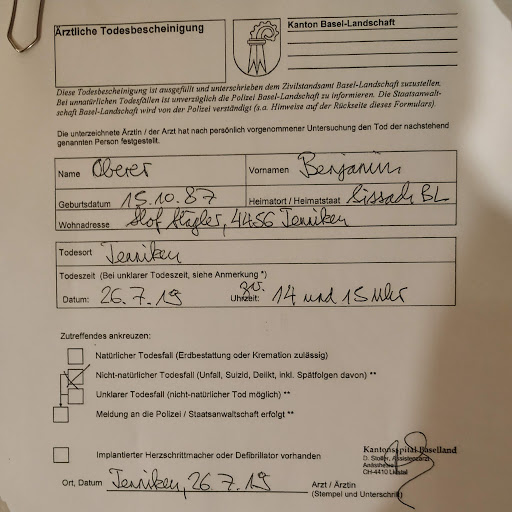 Ärztliche Todesbescheinigung
Kanton Basel-Landschaft
Diese Todesbescheinigung ist ausgefüllt und unterschrieben dem Zivilstandsamt Basel-Landschaft zuzustellen.
Bei unnatürlichen Todesfällen ist unverzüglich die Polizei Basel-Landschaft zu informieren. Die Staatsanwalt-
schaft Basel-Landschaft wird von der Polizei verständigt (s.a. Hinweise auf der Rückseite dieses Formulars).
Die unterzeichnete Ärztin / der Arzt hat nach persönlich vorgenommener Untersuchung den Tod der nachstehend
genannten Person festgestellt.
Name Oberer Vornamen Benjamin
Geburtsdatum 15.10.87 Heimatort / Heimatstaat Sissach BL
Wohnadresse Hof 4456 Tenniken
Todesort Tenniken
Todeszeit (Bei unklarer Todeszeit, siehe Anmerkung *)
Datum: 26.7.19 Uhrzeit: zw. 14 und 15 Uhr
Zutreffendes ankreuzen:
Natürlicher Todesfall (Erdbestattung oder Kremation zulässig)
Nicht-natürlicher Todesfall (Unfall, Suizid, Delikt, inkl. Spätfolgen davon) **
Unklarer Todesfall (nicht-natürlicher Tod möglich) **
Meldung an die Polizei / Staatsanwaltschaft erfolgt **
Implantierter Herzschrittmacher oder Defibrillator vorhanden
Kantonsspital Baselland
Assistenzarzt
Anästhesie
CH-4410 Liestal
Ort, Datum Tenniken, 26.7.19 Arzt / Ärztin
(Stempel und Unterschrift)